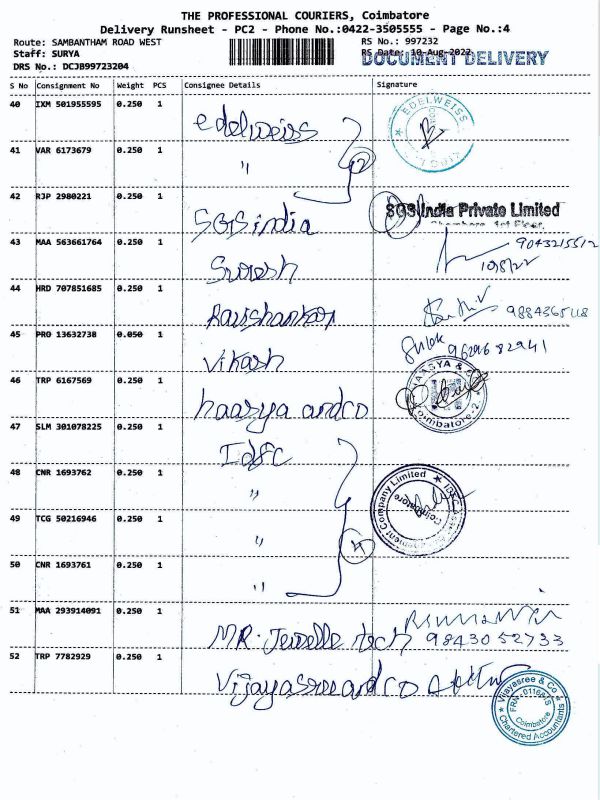 THE PROFESSIONAL COURIERS, Coimbatore
Delivery Runsheet - PC2 - Phone No.:0422-3505555 - Page No.:4
Route: SAMBANTHAM ROAD WEST RS No.: 997232
Staff: SURYA RS Date: 10-Aug-2022
DOCUMENT DELIVERY
DRS No.: DCJB99723204
S No Consignment No Weight PCS Consignee Details Signature
40 IXM 501955595 0.250 1 edelweiss EDELWEISS
41 VAR 6173679 0.250 1 " 2
42 RJP 2980221 0.250 1 SGS india SGS India Private Limited
43 MAA 563661764 0.250 1 Suresh 9043215512
10/8/22
44 HRD 707851685 0.250 1 Ravishankar
45 PRO 13632738 0.050 1 Vikash 9629682941
46 TRP 6167569 0.250 1 haasya and co HAASYA & CO Coimbatore-2
47 SLM 301078225 0.250 1 Idfc
48 CNR 1693762 0.250 1 "
49 TCG 50216946 0.250 1 " Company Limited Coimbatore
50 CNR 1693761 0.250 1 " 4
51 MAA 293914091 0.250 1 MR. Jewelle tech 9843052733
52 TRP 7782929 0.250 1 Vijayasree and co Vijayasree & Co Coimbatore Chartered Accountants